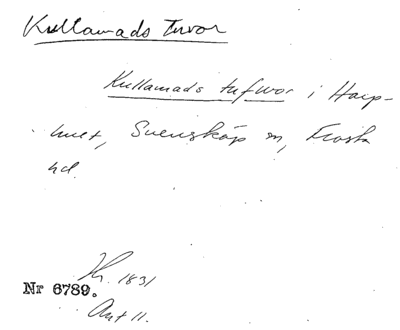 Kullamads Tuvor
Kullamads tufwor i Harp-
hult, Svensköp sn, Frosta
hd.
Nr 6789.
1831
Akt 11.